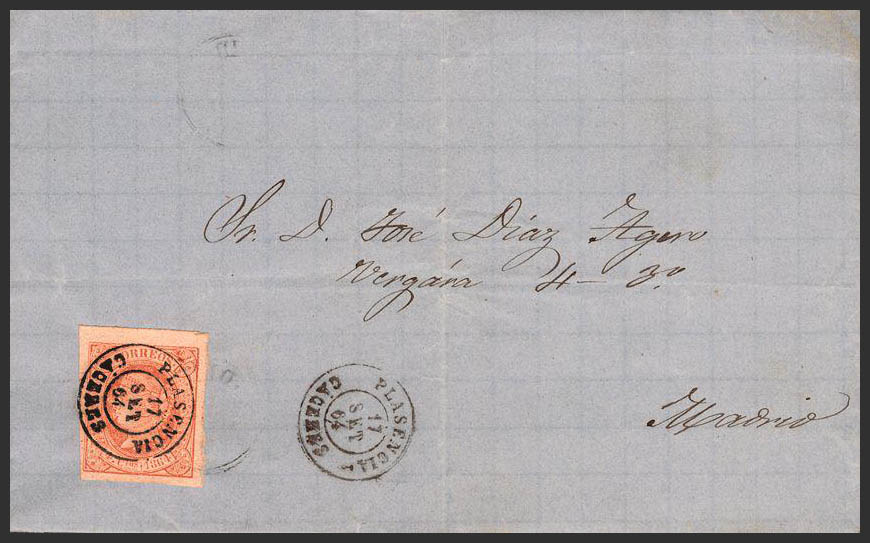 Sr. D. José Díaz Agero
Vergára 4 – 3º
Madrid
CORREOS
PLASENCIA
CÁCERES
17
SET
64
PLASENCIA
CÁCERES
17
SET
64